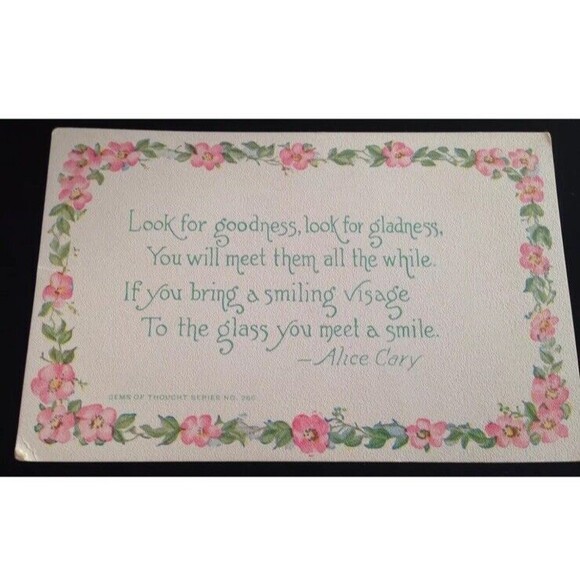 Look for goodness, look for gladness,
You will meet them all the while.
If you bring a smiling visage
To the glass you meet a smile.
—Alice Cary
GEMS OF THOUGHT SERIES NO.